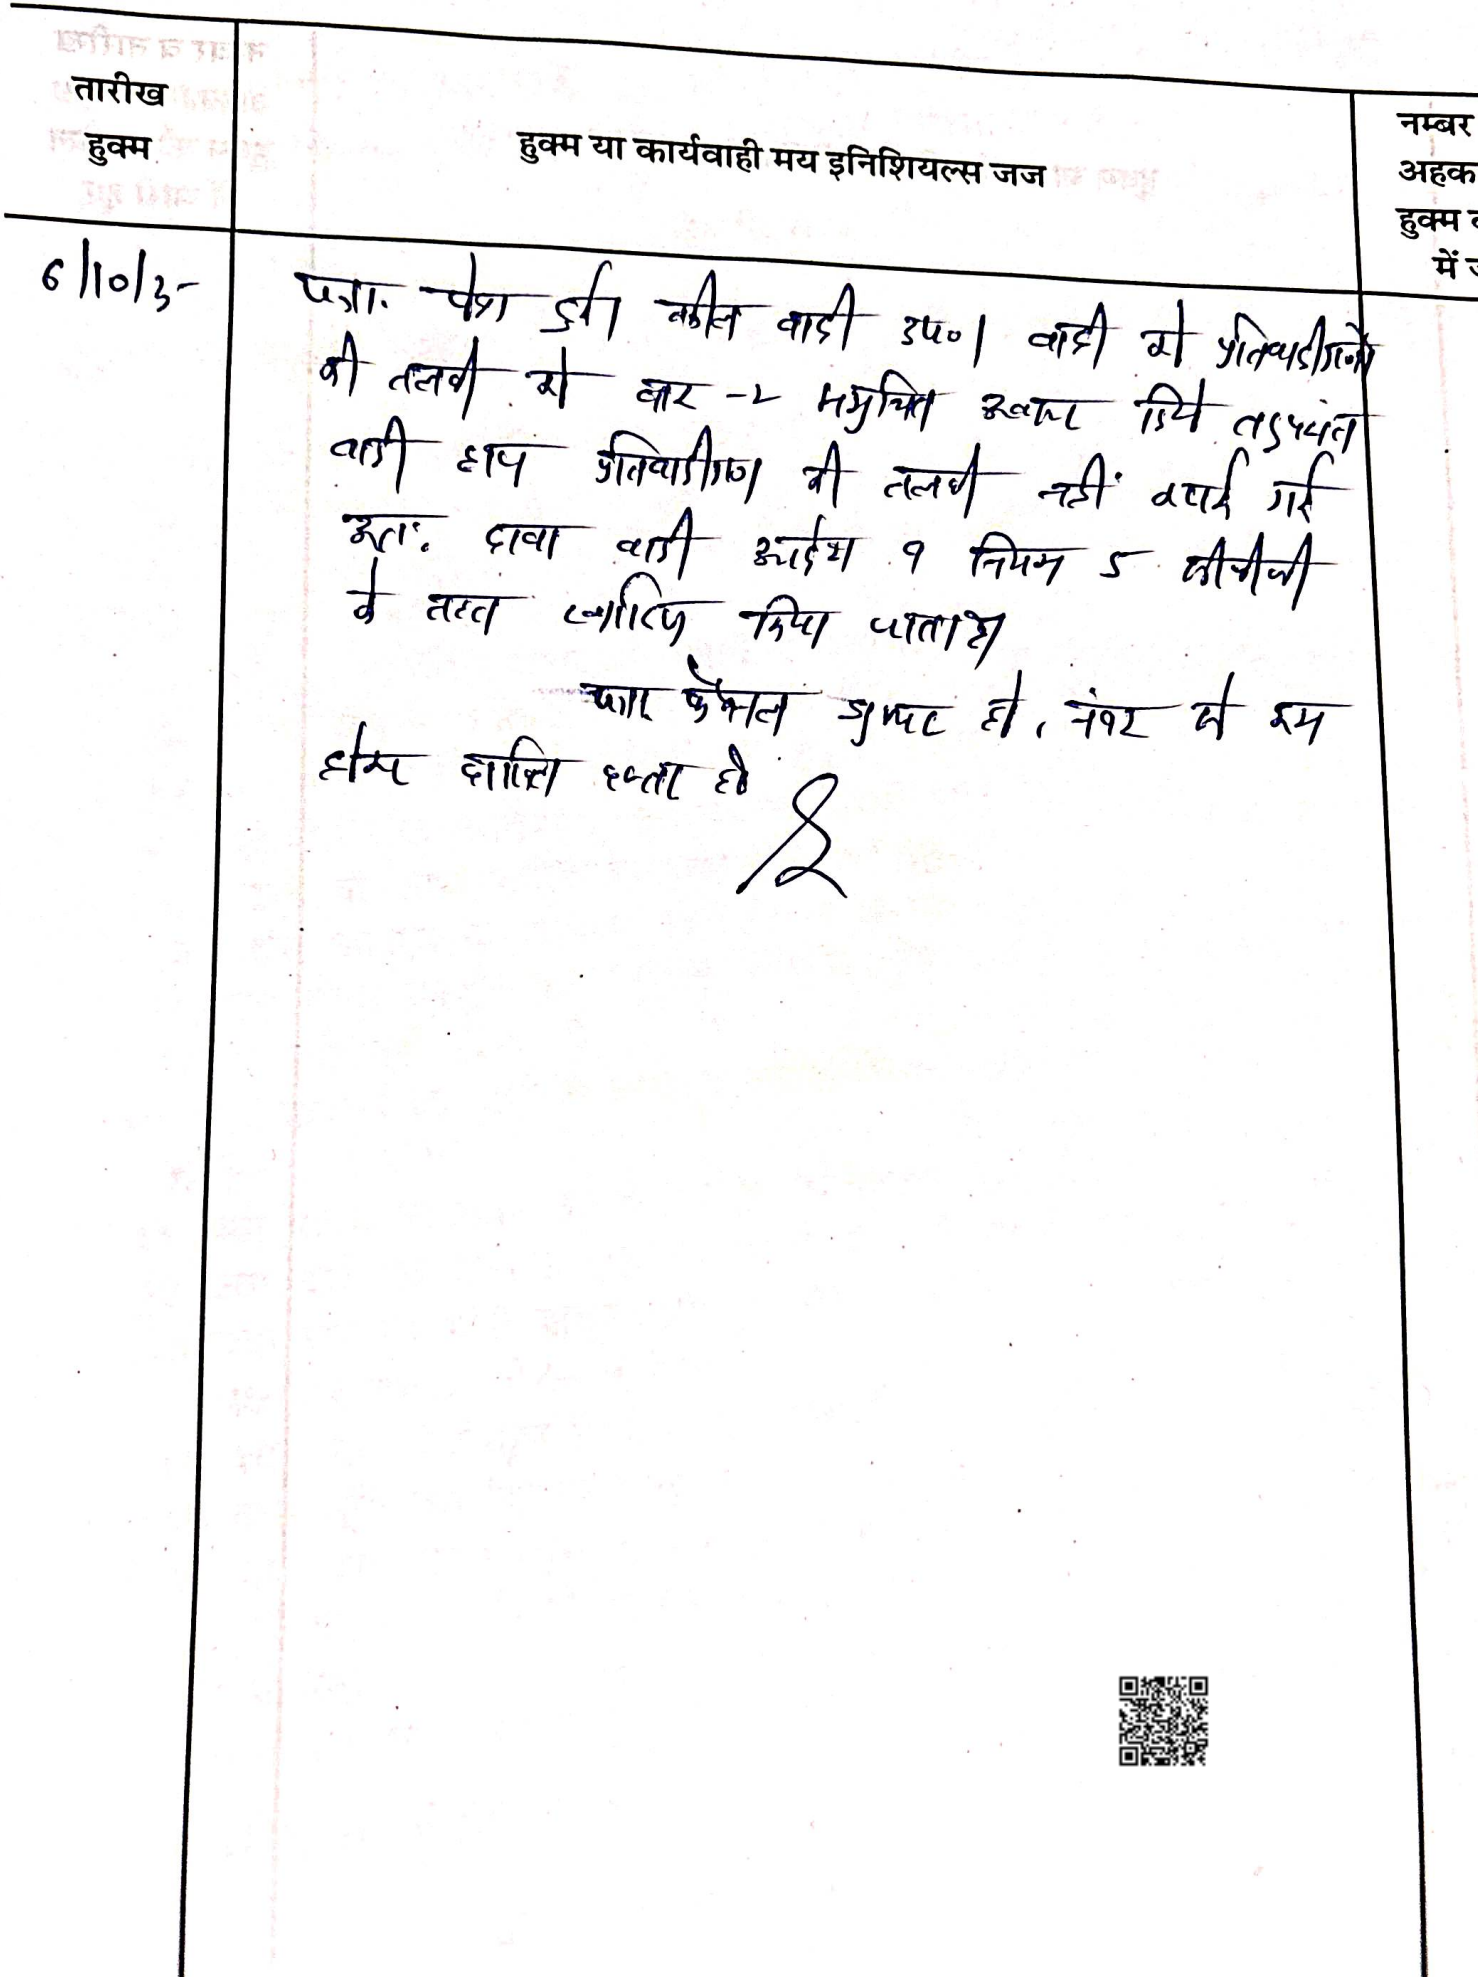 तारीख
हुक्म
हुक्म या कार्यवाही मय इनिशियल्स जज
नम्बर
अहक
हुक्म
में
6/10/
पत्रा. पेश हुई। वकील वादी उप०। वादी को प्रतिवादीगणों
की तलबी को बार -२ समुचित अवसर दिये तदुपरांत
वादी द्वारा प्रतिवादीगण की तलबी नहीं करवाई गई
अतः दावा वादी आदेश 9 नियम 5 सीपीसी
के तहत खारिज किया जाता है।
पत्रा. फैसल शुमार हो, नंबर से कम
होकर दाखिल दफ्तर हो